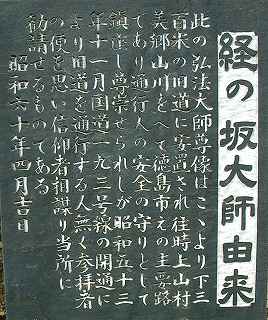 経の坂大師由来
此の弘法大師尊像はこゝより下三
百米の旧道に安置され往時上山村
美郷山川をへて徳島市えの主要路
であり通行人の安全の守りとして
鎮座し尊崇せられしが昭和五十三
年十一月国道一九三号線の開通に
より旧道を通行する人無く参拝者
の便を思い信仰者相謀り当所に
勧請せるものである
昭和六十年四月吉日